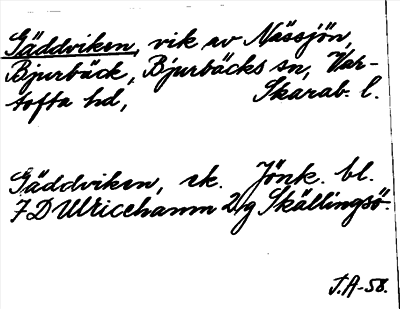 Gäddviken, vik av Nässjön,
Bjurbäck, Bjurbäcks sn, Var-
tofta hd, Skarab. l.
Gäddviken, ek. Jönk. bl.
7D Ulricehamn 2/g Skällingsö.
J.A-58.